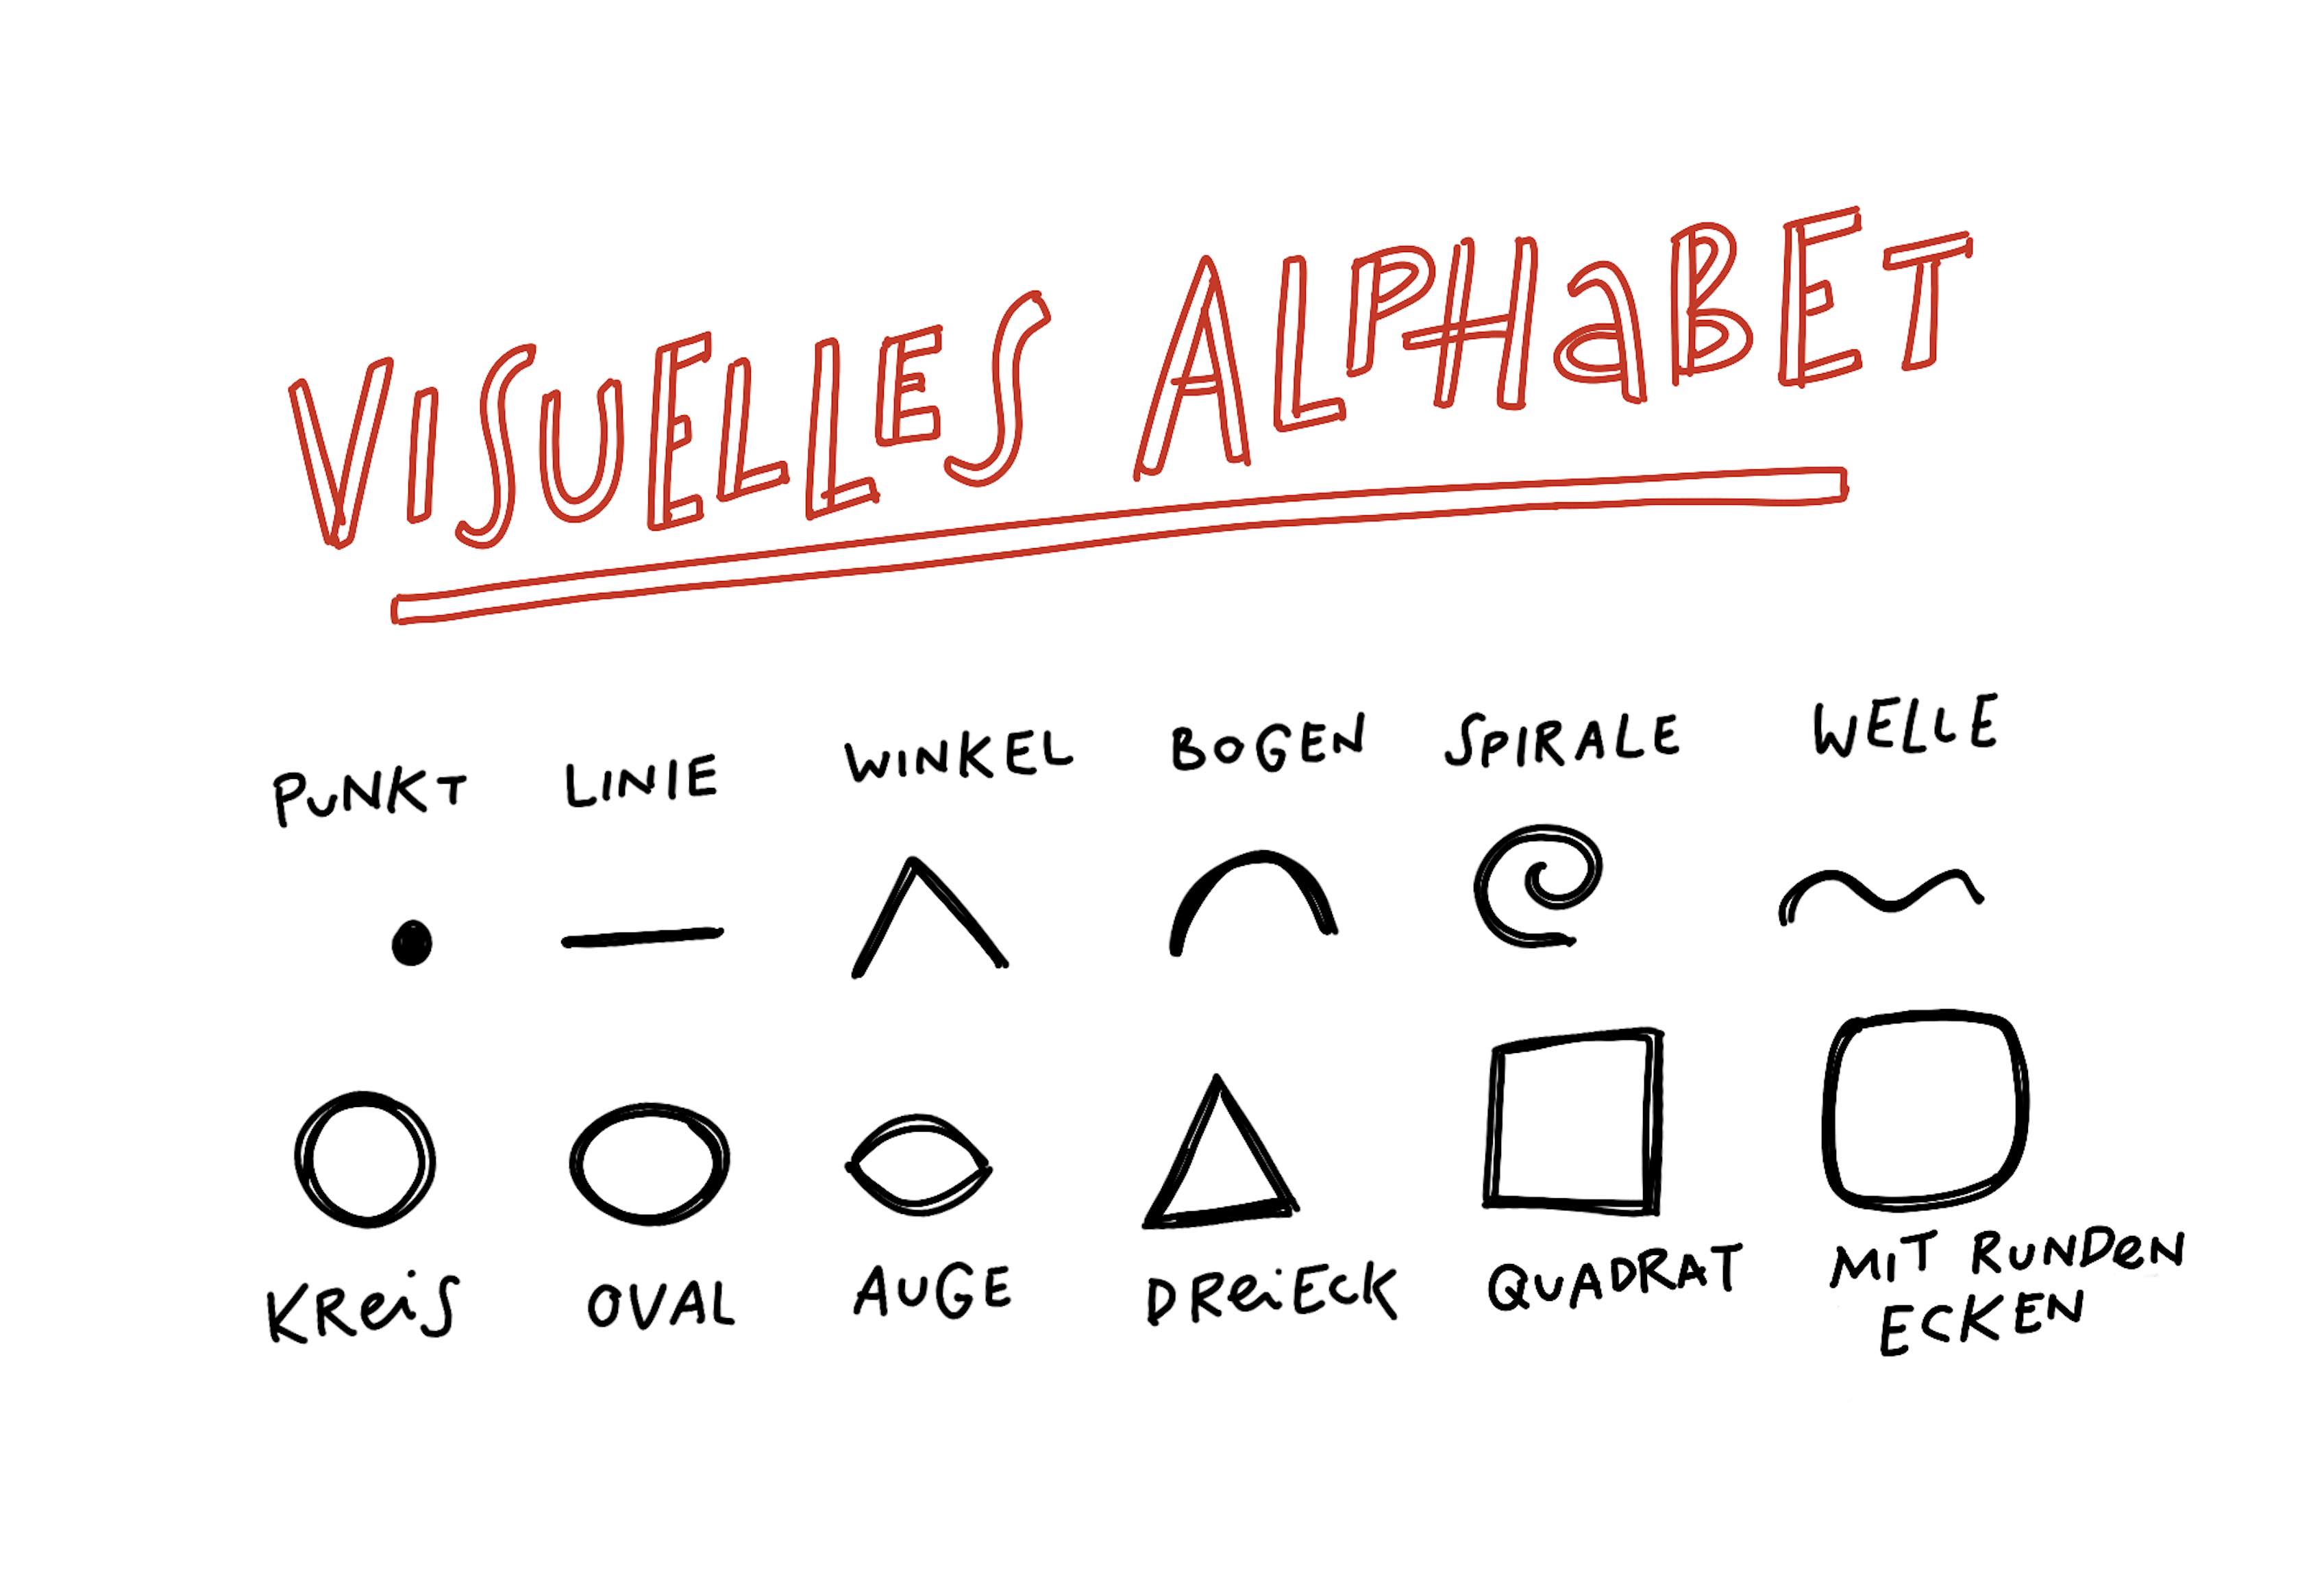 VISUELLES ALPHaBET
PUNKT LINIE WINKEL BOGEN SPIRALE WELLE
KReiS OVAL AUGE DReiECK QUADRAT MIT RUNDeN
ECKEN